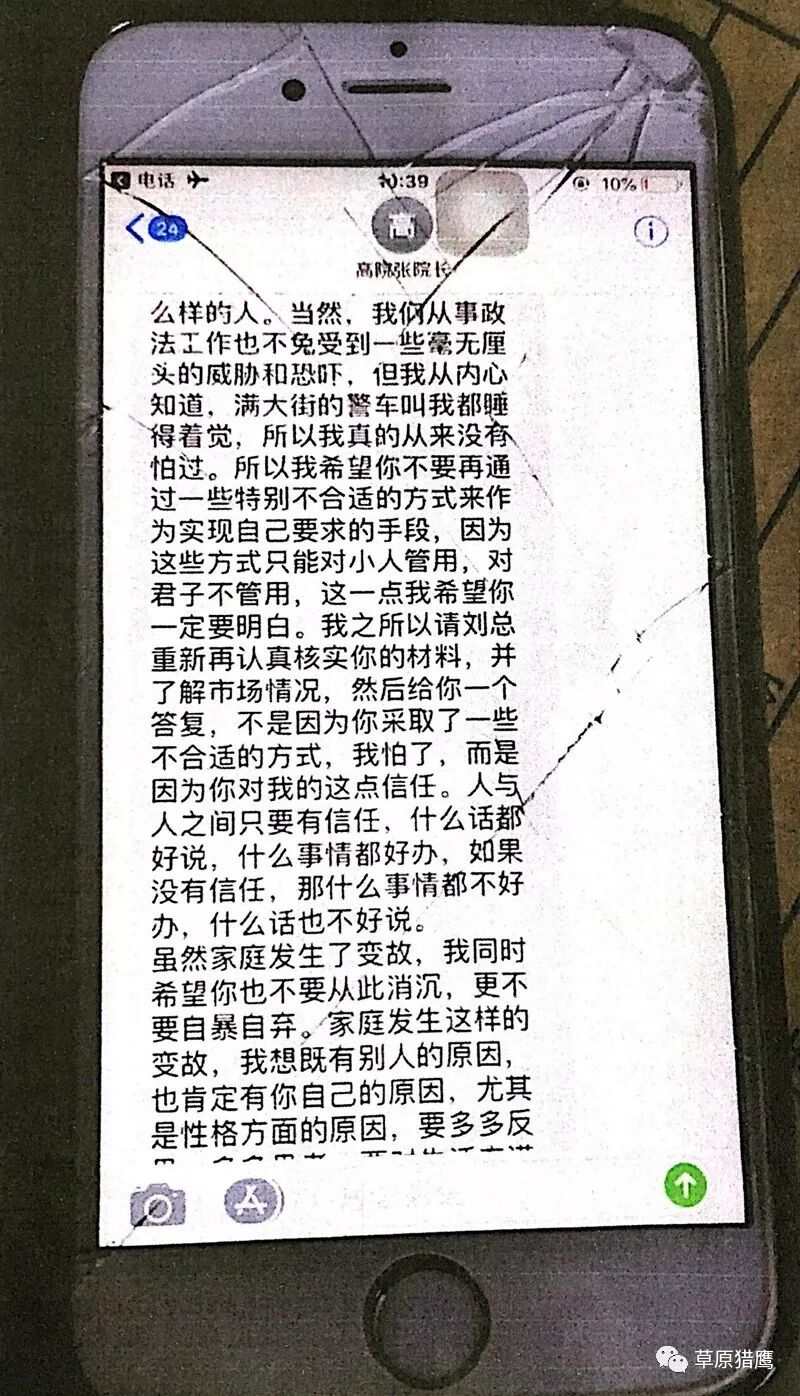 电话
10:39
10%
24
高
高院张院长
么样的人。当然，我们从事政
法工作也不免受到一些毫无厘
头的威胁和恐吓，但我从内心
知道，满大街的警车叫我都睡
得着觉，所以我真的从来没有
怕过。所以我希望你不要再通
过一些特别不合适的方式来作
为实现自己要求的手段，因为
这些方式只能对小人管用，对
君子不管用，这一点我希望你
一定要明白。我之所以请刘总
重新再认真核实你的材料，并
了解市场情况，然后给你一个
答复，不是因为你采取了一些
不合适的方式，我怕了，而是
因为你对我的这点信任。人与
人之间只要有信任，什么话都
好说，什么事情都好办，如果
没有信任，那什么事情都不好
办，什么话也不好说。
虽然家庭发生了变故，我同时
希望你也不要从此消沉，更不
要自暴自弃。家庭发生这样的
变故，我想既有别人的原因，
也肯定有你自己的原因，尤其
是性格方面的原因，要多多反
草原猎鹰